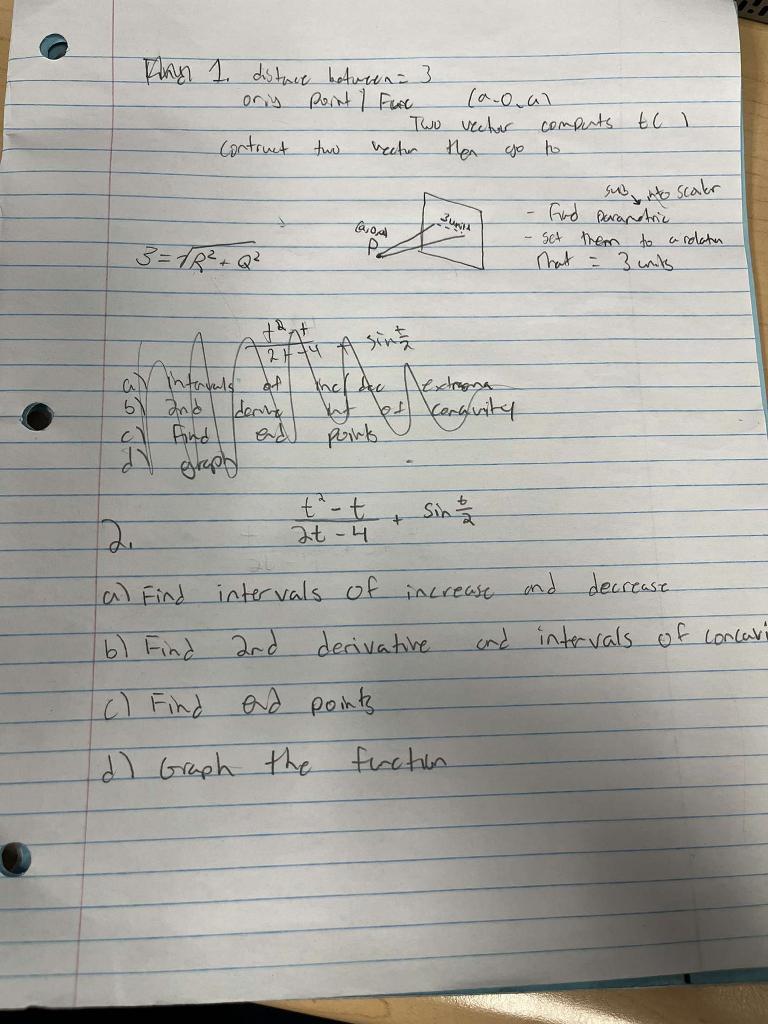 1. distance between = 3
only point 1 Func (a,0,a)
Two vector computs t( )
Contruct two vector then go to
sub into scalar
- Find parametric
- set them to a relation
that = 3 units
(a,0,a)
P
3 units
3 = √R² + Q²
t² - t
2t - 4
+ sin t/2
a) intervals of inc/dec / extrema
b) 2nd deriv int of congvity
c) Find end points
d) graph
2. t² - t / 2t - 4 + sin t/2
a) Find intervals of increase and decrease
b) Find 2nd derivative and intervals of concavi
c) Find end points
d) Graph the function